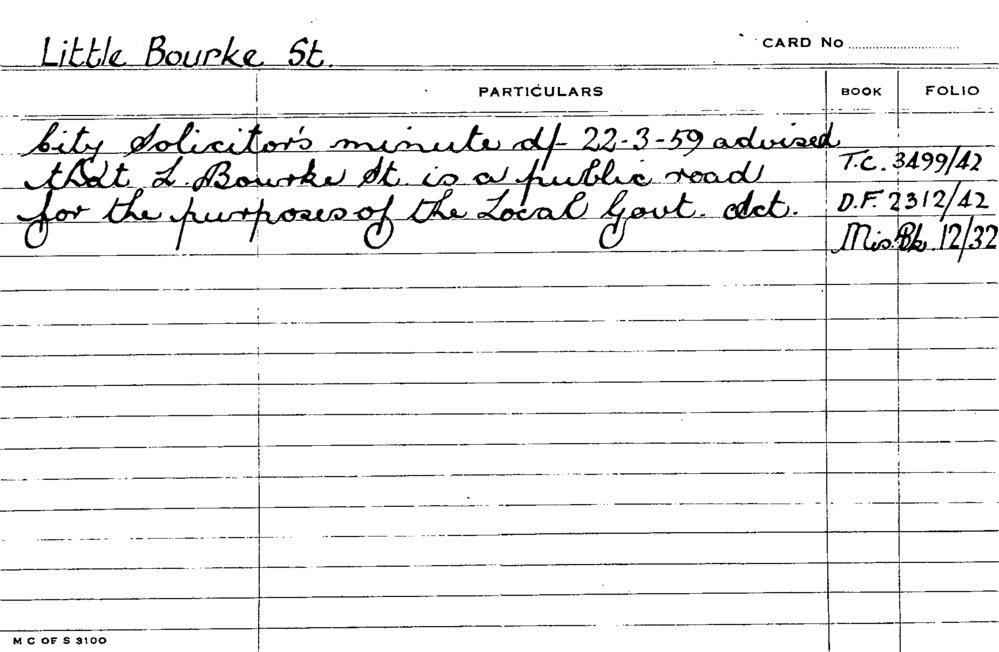 Little Bourke St.
CARD No
PARTICULARS BOOK FOLIO
City Solicitor's minute df 22-3-59 advised
that L. Bourke St. is a public road
for the purposes of the Local Govt. Act.
T.C. 3499/42
D.F. 2312/42
Mis. Bk. 12/32
M C OF S 3100